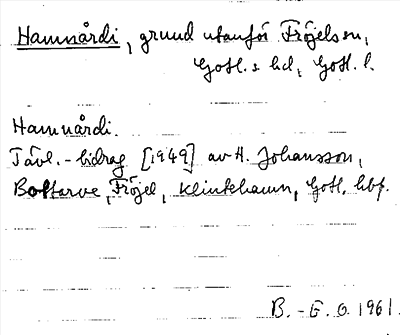 Hamnårdi, grund utanför Fröjel sn,
Gotl. s hd, Gotl. l.
Hamnårdi.
Tävl.-bidrag [1949] av H. Johansson,
Bottarve, Fröjel, Klintehamn, Gotl. hbf.
B.-E. O. 1961.